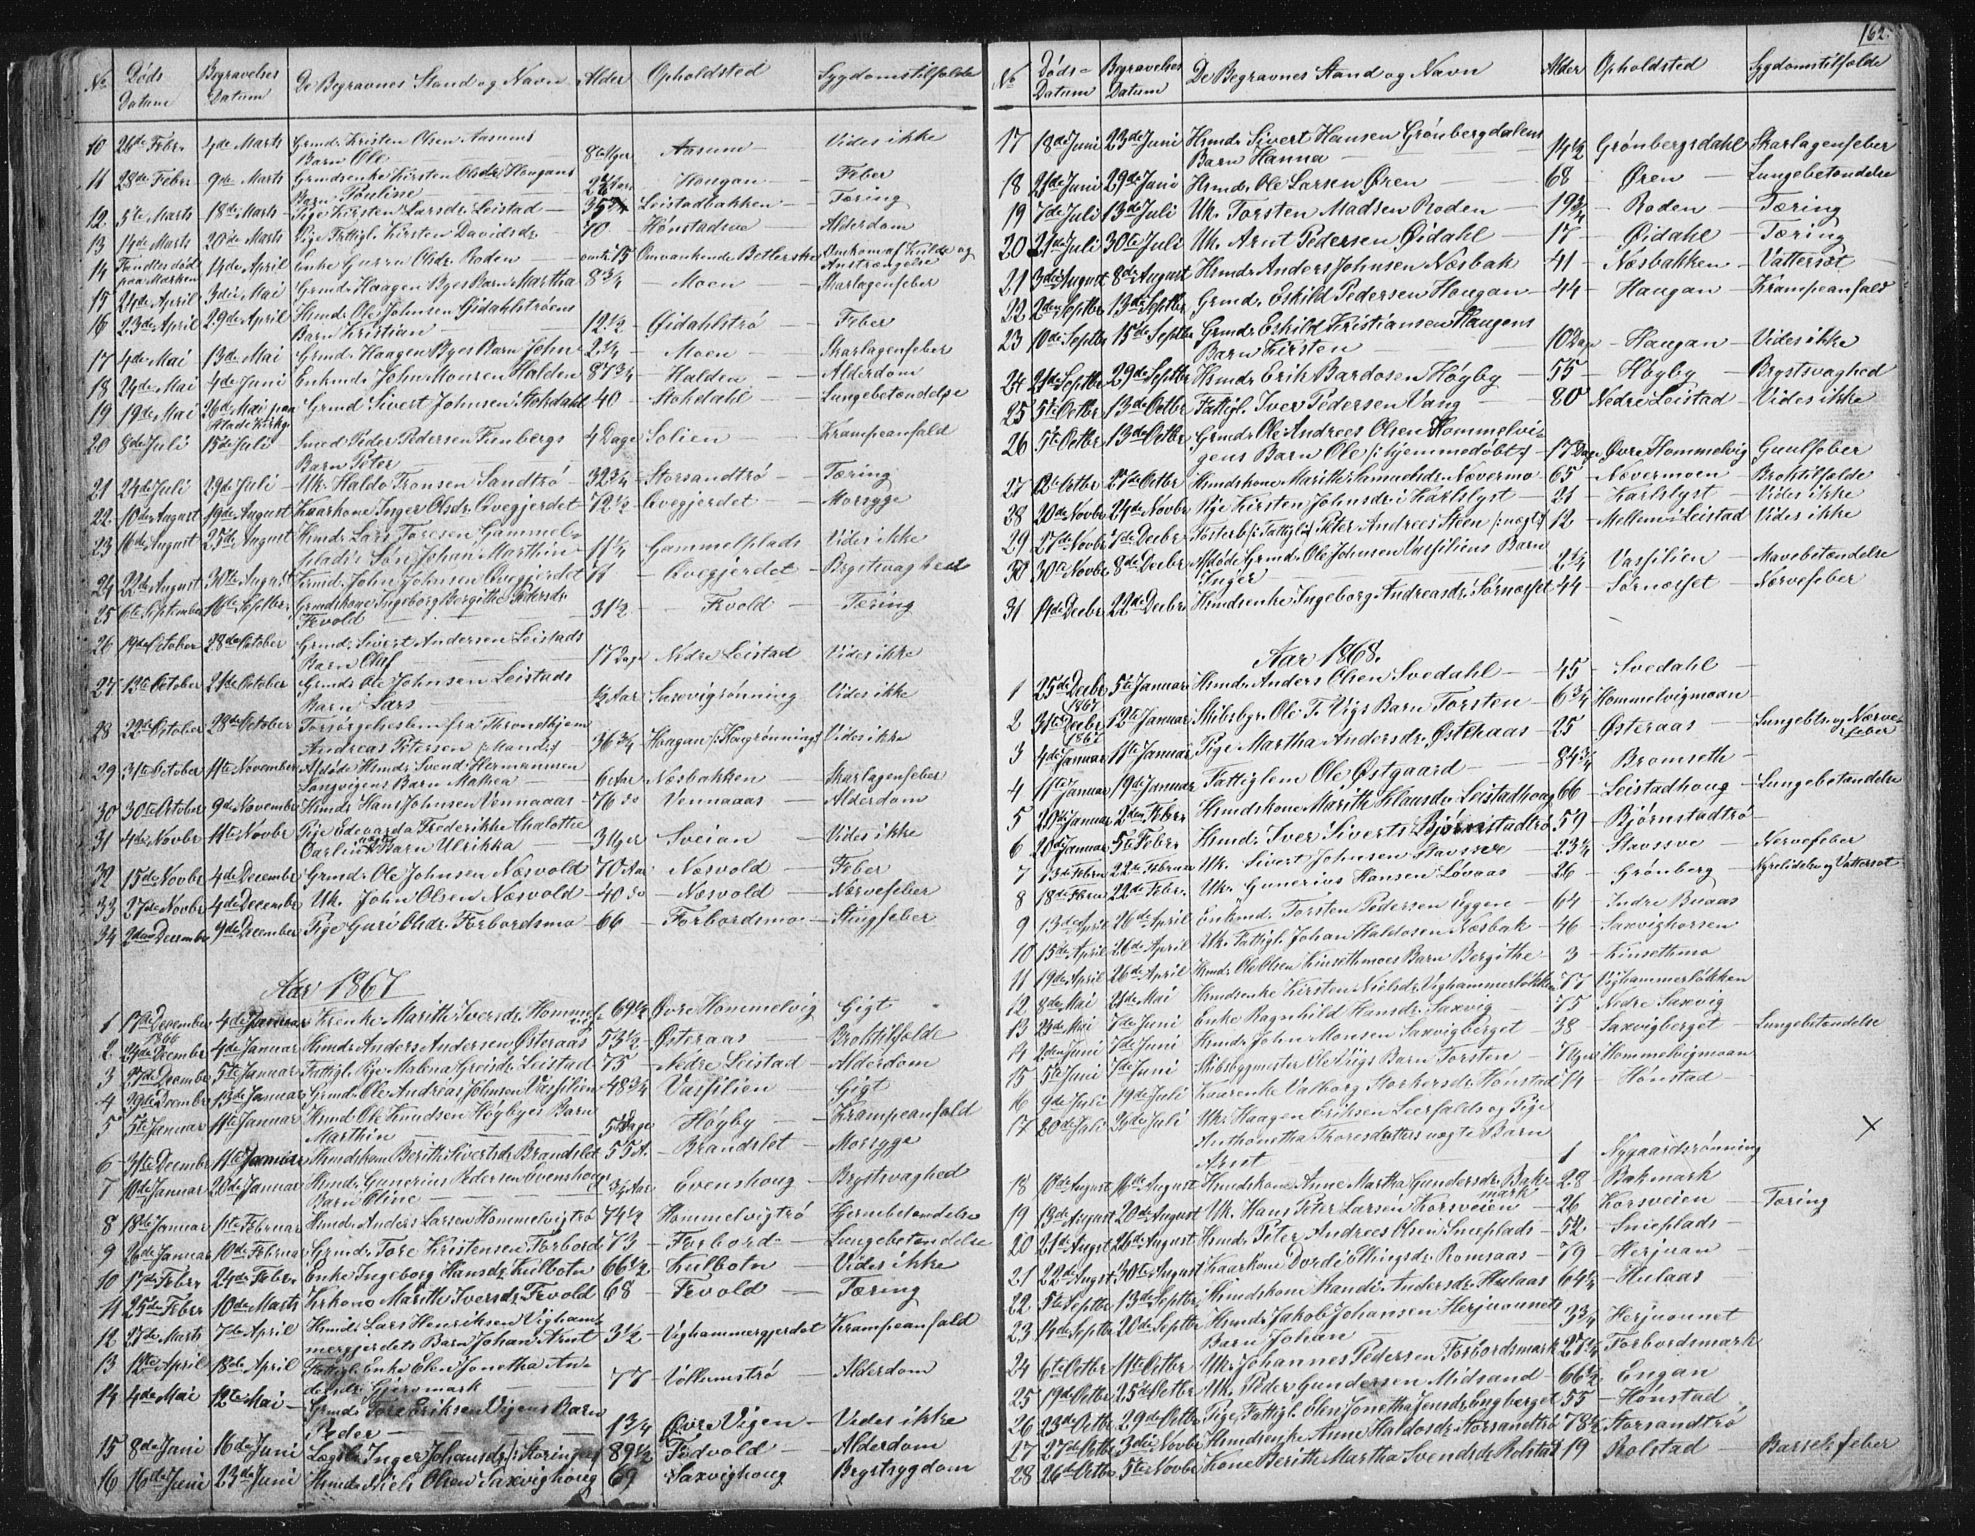 162.
No Døds Datum Begravelses Datum De Begravnes Stand og Navn Alder Opholdsted Sygdomstilfælde
10 26de Febr. 4de Marts Grmd. Kristen Olsen Aasums
Barn Ole 8te Uger Aasum Vides ikke
11 28de Febr 9de Marts Grmdsenke Kirsten Olsdr. Hougans
Barn Pouline Hougan Feber
12 5te Marts 18de Marts Pige Kirsten Larsdr. Leistad Leistadbakken Tæring
13 14de Marts 20de Marts Pige Fattigl. Kirsten Davidsdr. 70 Hønstadsve Alderdom
14 Fandtes død paa Marken 14de April Enke Gurru Olsdr. Roden 75 Omvankende Betlerske Omkom af Kulde og Anstrængelse
15 24de April 3die Mai Grmd. Haagen Byes Barn Martha 8 3/4 Moen Skarlagenfeber
16 23de April 29de April Hsmd. Ole Johnsen Øidahlstrøens
Barn Kristian 12 1/2 Øidahlstrø Feber
17 4de Mai 13de Mai Grmd. Haagen Byes Barn John 2 1/4 Moen Skarlagenfeber
18 24de Mai 4de Juni Enkmd. John Monsen Halden 87 3/4 Halden Alderdom
19 19de Mai 26de Mai paa Grmd Sivert Johnsen Stokdahl 40 Stokdahl Lungebetændelse
20 8de Juli 15de Juli Smed Peder Pedersen Finbergs
Barn Peter 4 Dage Solien Krampeanfald
21 24de Juli 29de Juli Uk. Haldo Tronsen Sandtrø 32 3/4 Storsandtrø Tæring
22 10de August 19de August Kaarkone Inger Olsdr. Avegjerdet 72 1/2 Avegjerdet Morsyge
23 16de August 25de August Hsmd. Lars Toresen Gammel-
plads's Søn Johan Marthin 11 1/4 Gammelplads Vides ikke
24 22de August 30te August Hsmd. John Johnsen Avegjerdet Avegjerdet Brystsvaghed
25 6te September 16te Septbr. Grmdskone Ingeborg Bergithe Pedersdr
Fevold 31 1/2 Fevold Tæring
26 19de October 28de October Grmd. Sivert Andersen Leistads
Barn Oluf 17 Dage Nedre Leistad Vides ikke
27 12te October 21de October Grmd. Ole Johnsen Leistads
Barn Lars 1/2 Aar Saxvigrønning Vides ikke
28 22de October 28de October Forsørgelsesbem fra Throndhjem
Andreas Petersen 36 3/4 Hougan Vides ikke
29 31te October 11te November Afdøde Hsmd. Svend Hermannsen
Langvigens Barn Mahea 6 Aar Næsbakken Skarlagenfeber
30 30te October 9de November Hsmd. Hans Johnsen Vennaaas 76 do Vennaaas Alderdom
31 4de Novbr 11te Novbr Pige Edevarda Frederikke Chalotte
Barn Ulrikka 3 Uger Sveian Vides ikke
32 15de Novbr 4de December Grmd. Ole Johnsen Næsvold 70 Aar Næsvold Feber
33 27de Novbr 4de December Uk. John Olsen Næsvold 40 do Næsvold Nervefeber
34 2den December 9de December Pige Guri Olsdr. Forbordsmo 66 Forbordsmo Stingfeber
Aar 1867
1 17de December 1866 4de Januar Krenke Marith Iversdr. Hommelvig 69 1/2 Øvre Hommelvig Gigt
2 24de December 4de Januar Hsmd. Anders Andersen Østeraas 53 1/2 Østeraas Broktilfælde
3 27de Decembr 5te Januar Fattigl. Pige Malena Greisdr. Leistad 75 Nedre Leistad Alderdom
4 29de Decembr 13de Januar Grmd. Ole Andreas Johnsen Vasfilien 48 3/4 Vasfilien Gigt
5 5te Januar 11te Januar Hsmd. Ole Knudsen Høybyes Barn
Marthin Dage Høyby Krampeanfald
6 31te Decembr 11te Januar Hsmdskone Berith Sivertsdr. Brandslet 55 A. Brandslet Morsyge
7 10de Januar 20de Januar Hsmd. Gunerius Pedersen Evenshougs
Barn Oline 3/4 Aar Evenshoug Brystsvaghed
8 18de Januar 1ste Februar Hsmd. Anders Larsen Hommelvigtrø 74 1/2 Hommelvigtrø Hjernebetændelse
9 26de Januar 10de Februar Grmd. Tore Kristensen Forbord 73 Forbord Lungebetændelse
10 17de Febr. 24de Febr. Enke Ingeborg Hansdr. Kulbotn 66 1/2 Kulbotn Vides ikke
11 25de Febr 10de Marts Krkone Marith Iversdr. Fevold 68 Fevold Tæring
12 27de Marts 7de April Hsmd. Lars Henriksen Vigham-
mergjerdets Barn Johan Arnt 3 1/2 Vighammergjerdet Krampeanfald
13 12te April 18de April Fattigl. Enke Elen Jonetha An-
dersdr. Gjersmark 77 Volkumstrø Alderdom
14 4de Mai 12te Mai Grmd. Tore Eriksen Vigens Barn
Peder 1 3/4 Øvre Vigen Vides ikke
15 8de Juni 16de Juni Lægdl. Inger Johansdr. 89 1/2 Fedvold Alderdom
16 16de Juni 23de Juni Hsmd. Niels Olsen Saxvighoug 69 Saxvighoug Brystsygdom
No Døds Datum Begravelses Datum De Begravnes Stand og Navn Alder Opholdsted Sygdomstilfælde
17 18de Juni 23de Juni Hsmd. Sivert Hansen Grønbergdalens
Barn Hanna 14 1/2 Grønbergsdahl Skarlagenfeber
18 21de Juni 29de Juni Hsmd. Ole Larsen Øren 68 Øren Lungebetændelse
19 7de Juli 13de Juli Uk. Torsten Madsen Roden 19 3/4 Roden Tæring
20 21de Juli 30te Juli Uk. Arnt Pedersen Øidahl 17 Øidahl Tæring
21 3de August 8de August Hsmd. Anders Johnsen Næsbak 41 Næsbakken Vattersot
22 2den Septbr 13de Septbr Grmd. Eskild Pedersen Hougan 44 Haugan Krampeanfald
23 10de Septbr 15de Septbr Grmd. Eskild Kristiansen Haugens
Barn Kirsten 10 Dage Haugan Vides ikke
24 21de Septbr 29de Septbr Hsmd. Erik Bardosen Høyby 55 Høyby Brystsvaghed
25 5te Octbr 13de Octbr Fattigl. Iver Pedersen Vang 80 Nedre Leistad Vides ikke
26 5te Octbr 13de Octbr Grmd. Ole Andreas Olsen Hommelvi-
gens Barn Ole /: hjemmedøbt :/ 17 Dage Øvre Hommelvig Guulfeber
27 12te Octbr 27de Octbr Hsmdskone Marith Samuelsdr. Nævermo 65 Nævermoen Broktilfælde
28 20de Novbr 24de Novbr Pige Kirsten Johnsdr. Karlslyst 21 Karlslyst Vides ikke
29 17de Novbr 1ste Decbr Fosterb. Fattigl. Peter Andreas Steen /: uægte :/ 12 Mellem Leistad Vides ikke
30 30te Novbr 8de Decbr Afdøde Grmd. Ole Johnsen Vasfiliens Barn
Inger 2 1/4 Vasfilien Mavebetændelse
31 14de Decbr 22de Decbr Hsmdsenke Ingeborg Andreasdr. Sørnæsset 44 Sørnæsset Nervefeber
Aar 1868.
1 25de Decbr 1867 5te Januar Hsmd. Anders Olsen Svedahl 45 Svedahl
2 31te Decbr 1867 12te Januar Skibsbgr. Ole T. Vigs Barn Torsten 6 3/4 Hommelvigmoan
3 4de Januar 11te Januar Pige Martha Andersdr. Østeraas 25 Østeraas Lungebt. og Nerve-feber
4 11te Januar 19de Januar Fattiglem Ole Østgaard 84 3/4 Bromseth
5 20de Januar 2den Febr. Hsmdskone Marith Klausdr. Leistadhoug 66 Leistadhoug Lungebetændelse
6 28de Januar 5te Febr. Hsmd. Iver Siverts. Bjørnstadtrø 59 Bjørnstadtrø
7 13de Febr 22de Februar Uk. Sivert Johnsen Stavssve 23 3/4 Stavssve Nervefeber
8 18de Febr 22de Febr. Uk. Gunerius Hansen Lovaas 26 Grønberg Nyrelidelse og Vattersot
9 13de April 26de April Enkmd. Torsten Pedersen Eggen 64 Indre Buaas
10 15de April 26de April Uk. Fattigl. Johan Haldosen Næsbak 46 Saxvigkorsen
11 19de April 26de April Hsmd. Ole Olsen Kinsethmoes Barn Bergithe 3 Kinsethmo
12 8de Mai 21de Mai Hsmdsenke Kirsten Neilsdr. Vighammerløkken 77 Vighammerløkken
13 29de Mai 7de Juni Enke Ragnhild Hansdr. Saxvig 75 Nedre Saxvig
14 2den Juni 7de Juni Hsmd. John Monsen Saxvigberget 38 Saxvigberget Lungebetændelse
15 5te Juni 7de Juni Skibsbygmester Ole Vigs Barn Torsten 7 Uger Hommelvigmoan
16 9de Juli 19de Juli Kaarenke Valborg Storkersdr. Hønstad 74 Hønstad
17 20de Juli 26de Juli Uk. Haagen Eriksen Leerfalds og Pige
Anthonetha Thoresdatters uægte Barn
Arnt 1 Nygaardsrønning X
18 10de August 16de August Hsmdskone Anne Martha Gundersdr. Bak-
mark 28 Bakmark
19 13de August 20de August Uk. Hans Peter Larsen Korsveien 26 Korsveien Tæring
20 21de Augst 26de August Hsmd. Peter Andreas Olsen Sneeplads 52 Sneeplads
21 22de Augst 30te August Kaarkone Dordi Ellingsdr. Romsaas 79 Herjuan
22 5te Septbr 13de Septbr. Hsmdskone Randi Andersdr. Hulaas 64 1/4 Hulaas
23 14de Septbr 20de Septbr Hsmd. Jakob Johansen Herjuounets
Barn Johan 3 3/4 Herjuounet
24 6te Octbr 11te Octbr. Uk. Johannes Pedersen Forbordsmark 27 3/4 Forbordsmark
25 19de Octbr 25de Octbr Uk. Peder Gundersen Midsand 66 1/2 Engan
26 23de Octbr 29de Octbr Pige, Fattigl. Elen Jonetha Jensdr. Engberget 55 Hønstad
27 27de Octbr 3die Novbr Hsmdsenke Anne Haldosdr. Storsandtrø 78 1/2 Storsandtrø
28 26de Octbr 5te Novbr Kone Berith Martha Svendsdr. Rolstad 19 Rolstad Barselsfeber